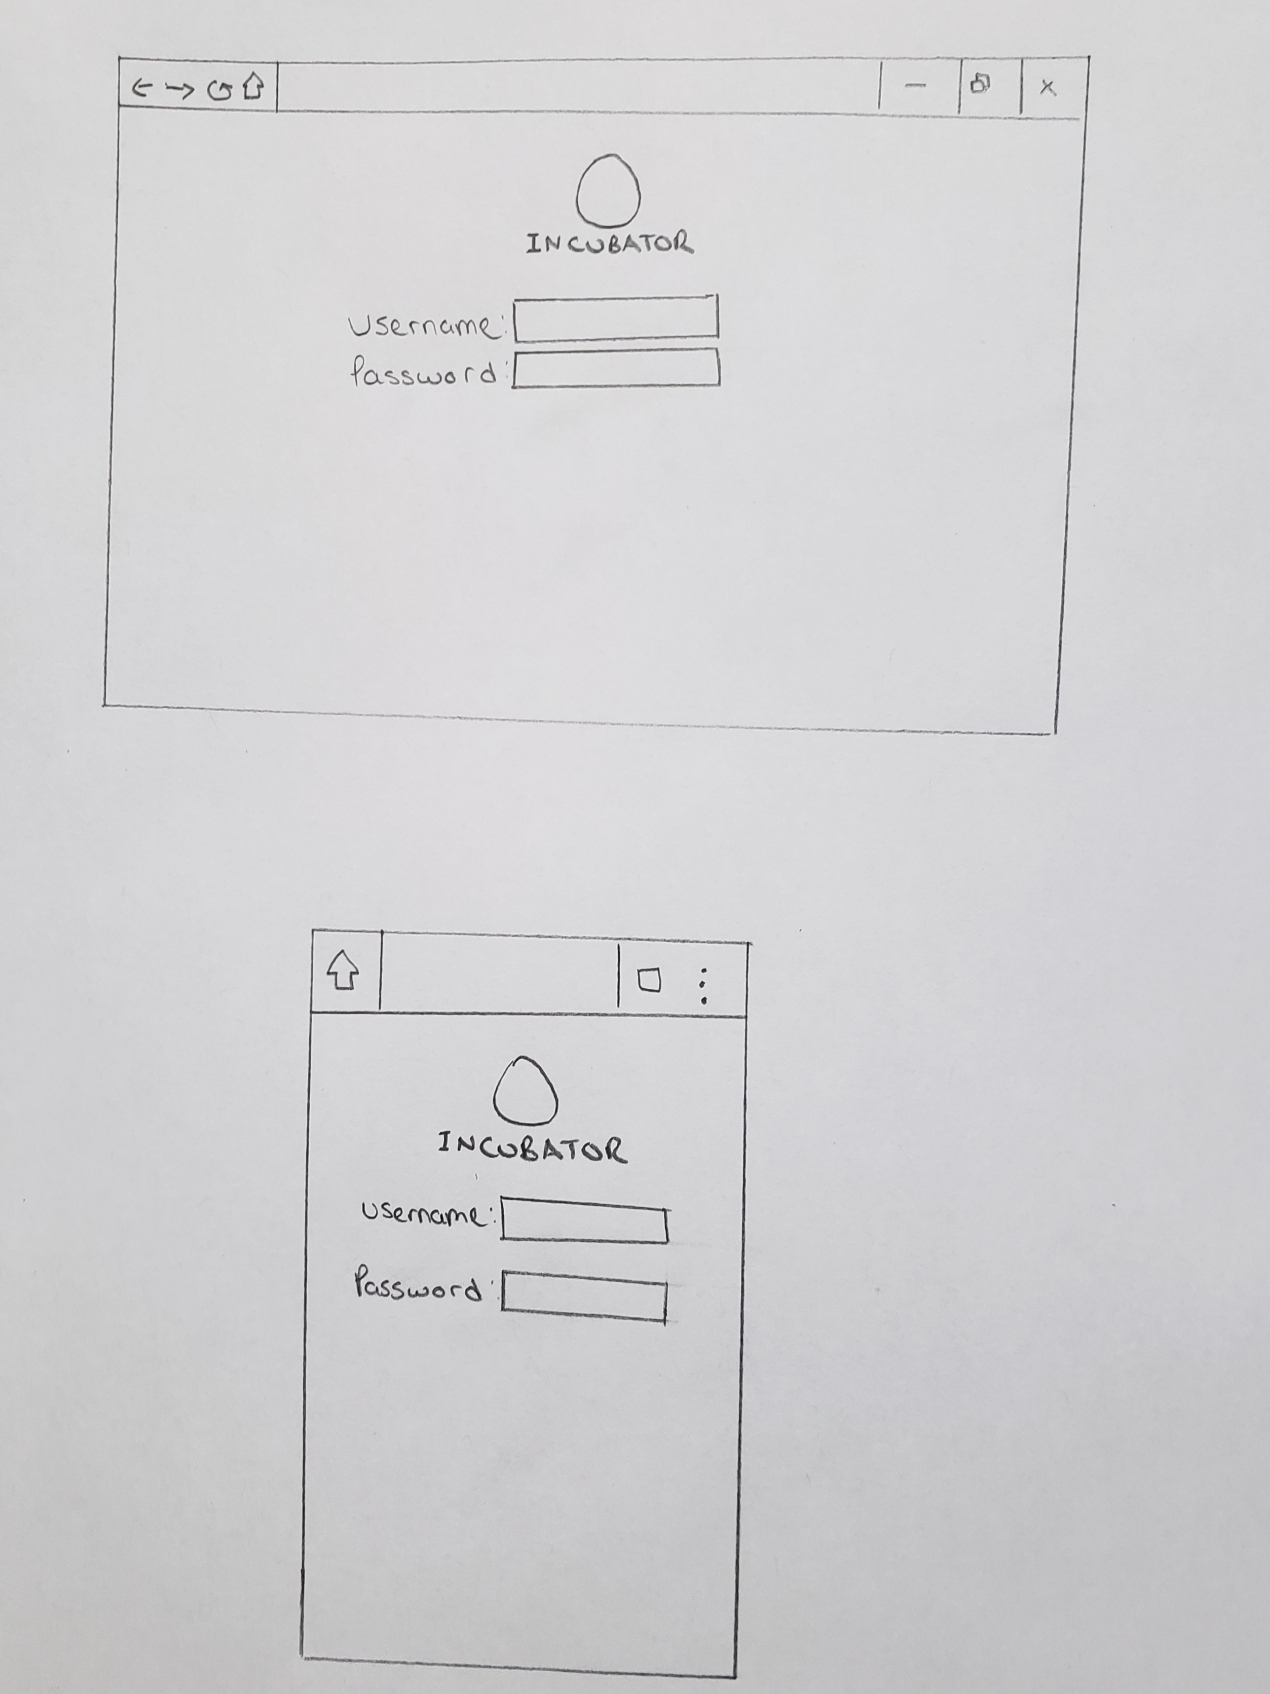 INCUBATOR
Username:
Password:
INCUBATOR
Username:
Password: